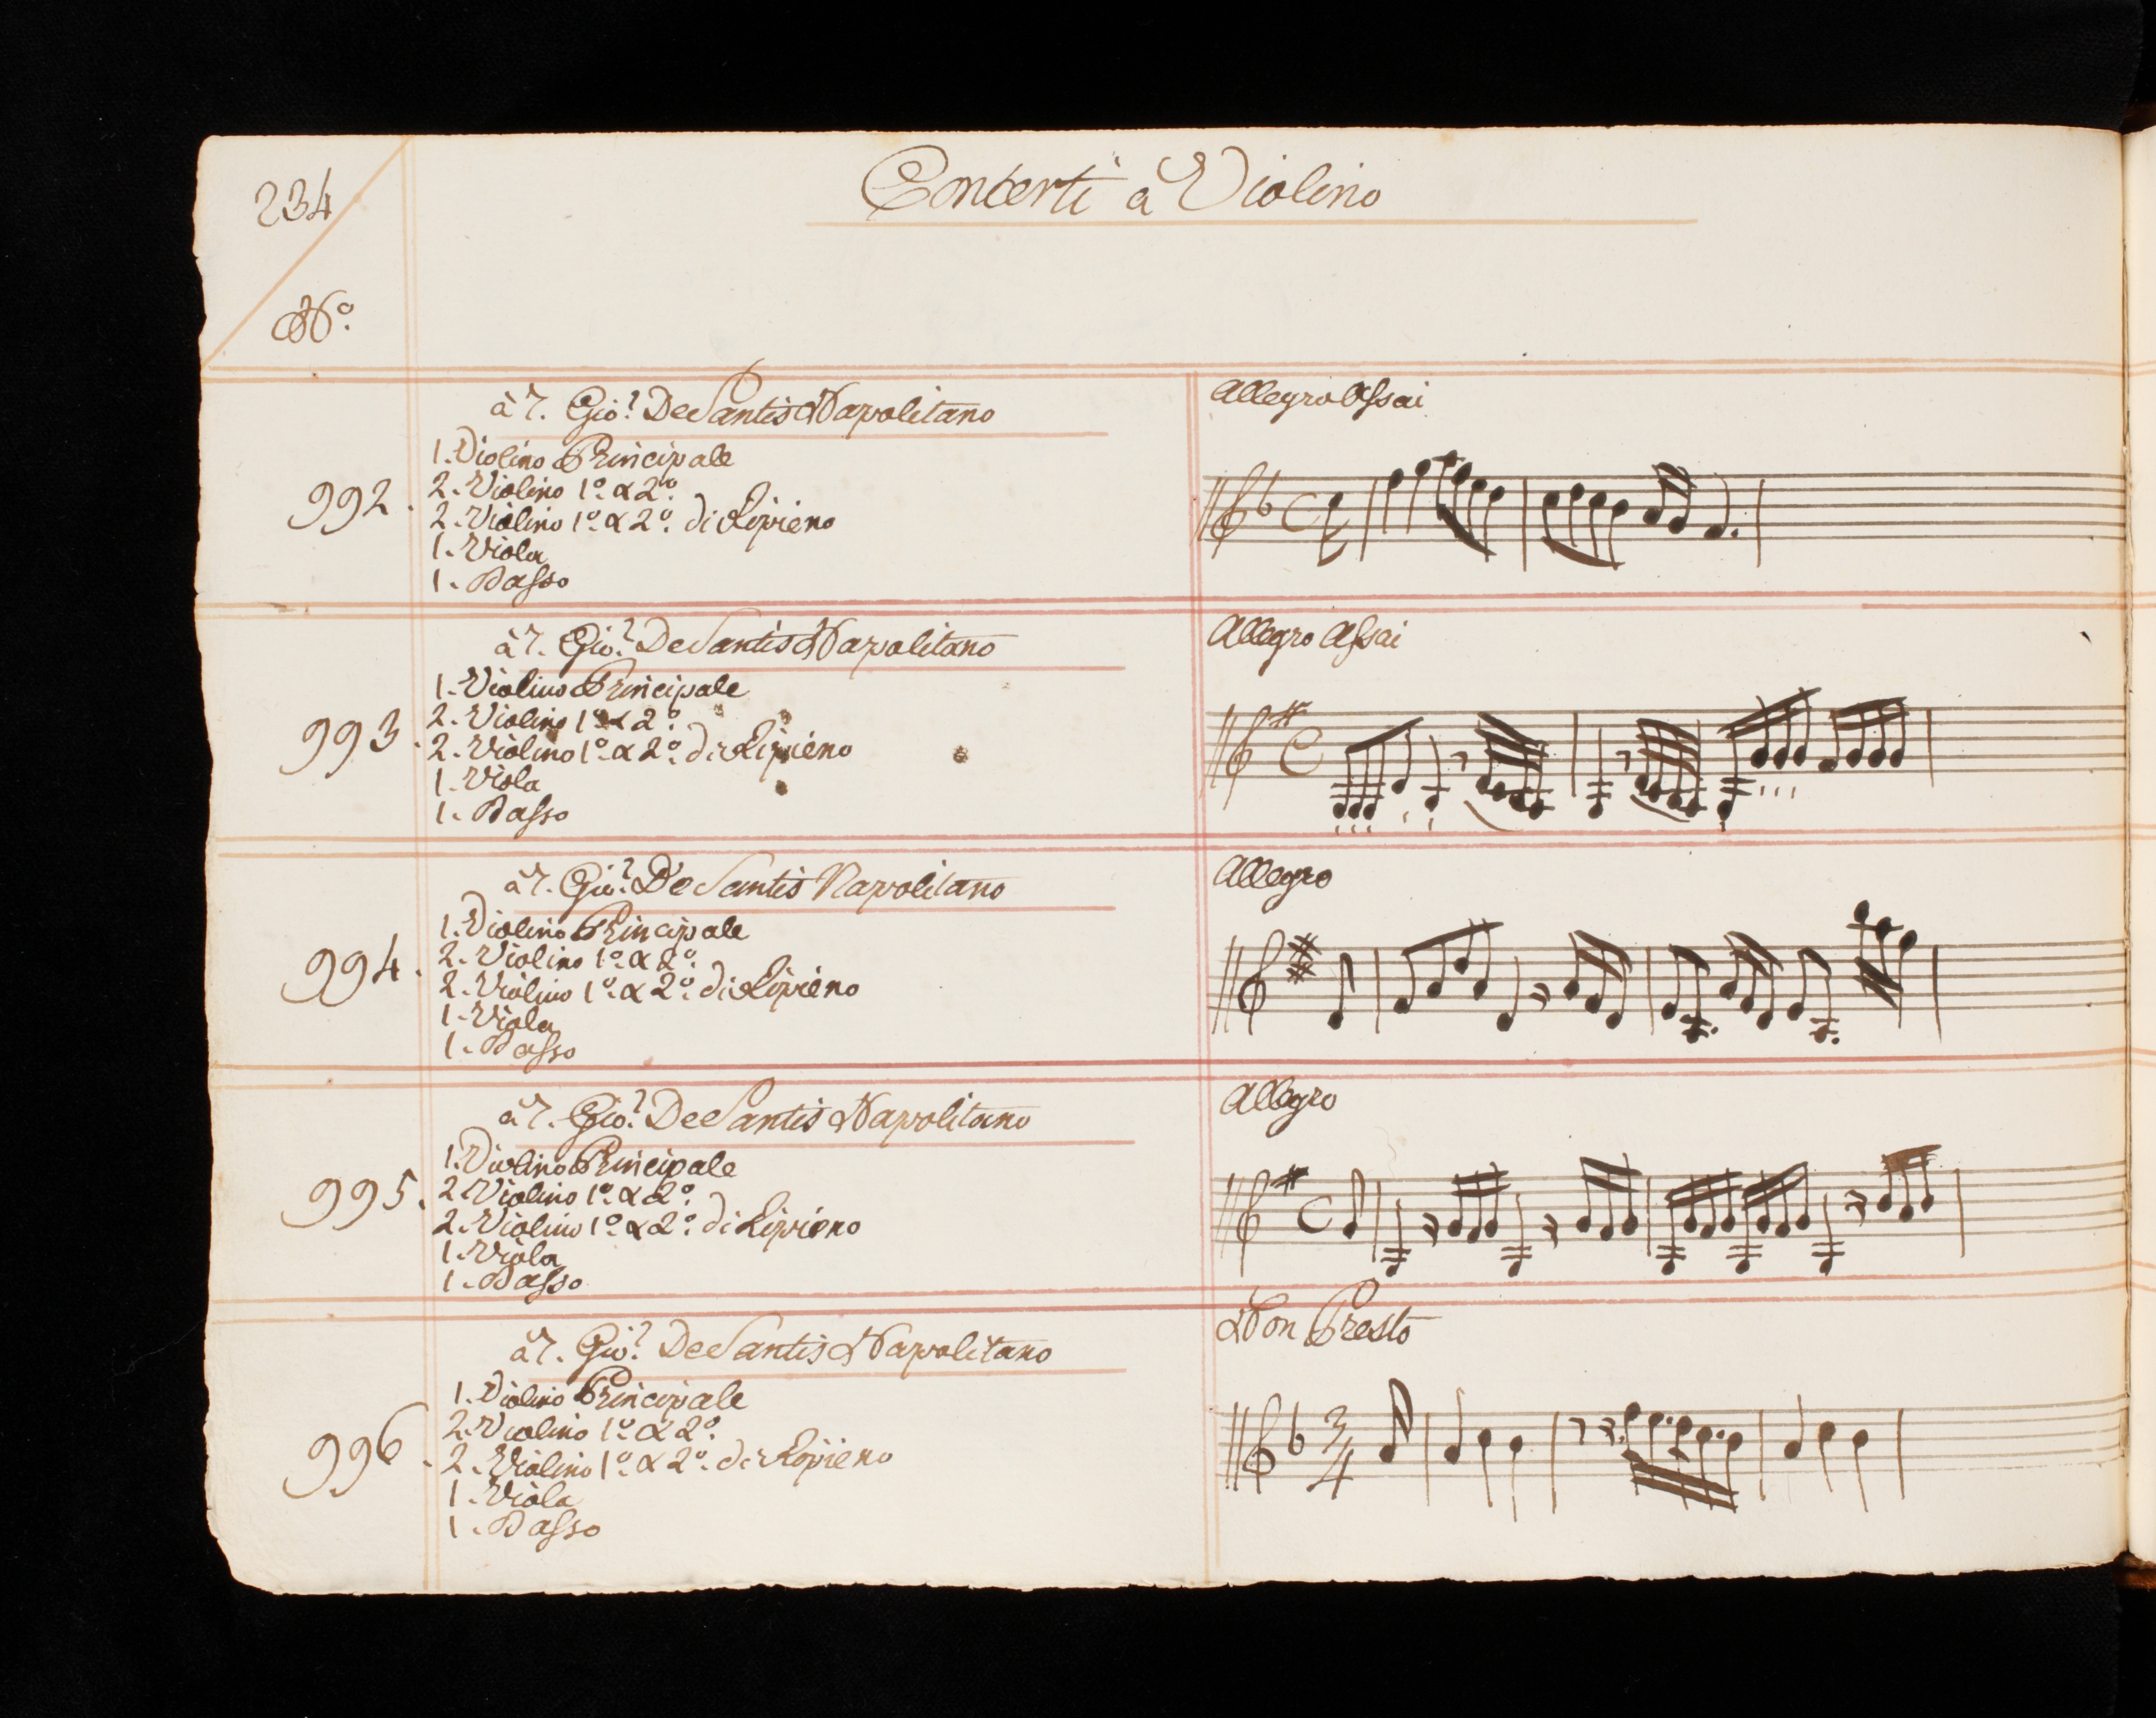 234
Concerti a Violino
No.
992.
à 7. Gio? De Santis Napolitano
1. Violino Principale
2. Violino 1o. & 2o.
2. Violino 1o. & 2o. di Ripieno
1. Viola
1. Basso
Allegro Assai
993.
à 7. Gio? De Santis Napolitano
1. Violino Principale
2. Violino 1o. & 2o.
2. Violino 1o. & 2o. di Ripieno
1. Viola
1. Basso
Allegro Assai
994.
à 7. Gio? De Santis Napolitano
1. Violino Principale
2. Violino 1o. & 2o.
2. Violino 1o. & 2o. di Ripieno
1. Viola
1. Basso
Allegro
995.
à 7. Gio? De Santis Napolitano
1. Violino Principale
2. Violino 1o. & 2o.
2. Violino 1o. & 2o. di Ripieno
1. Viola
1. Basso
Allegro
996.
à 7. Gio? De Santis Napolitano
1. Violino Principale
2. Violino 1o. & 2o.
2. Violino 1o. & 2o. di Ripieno
1. Viola
1. Basso
Non Presto
3/4